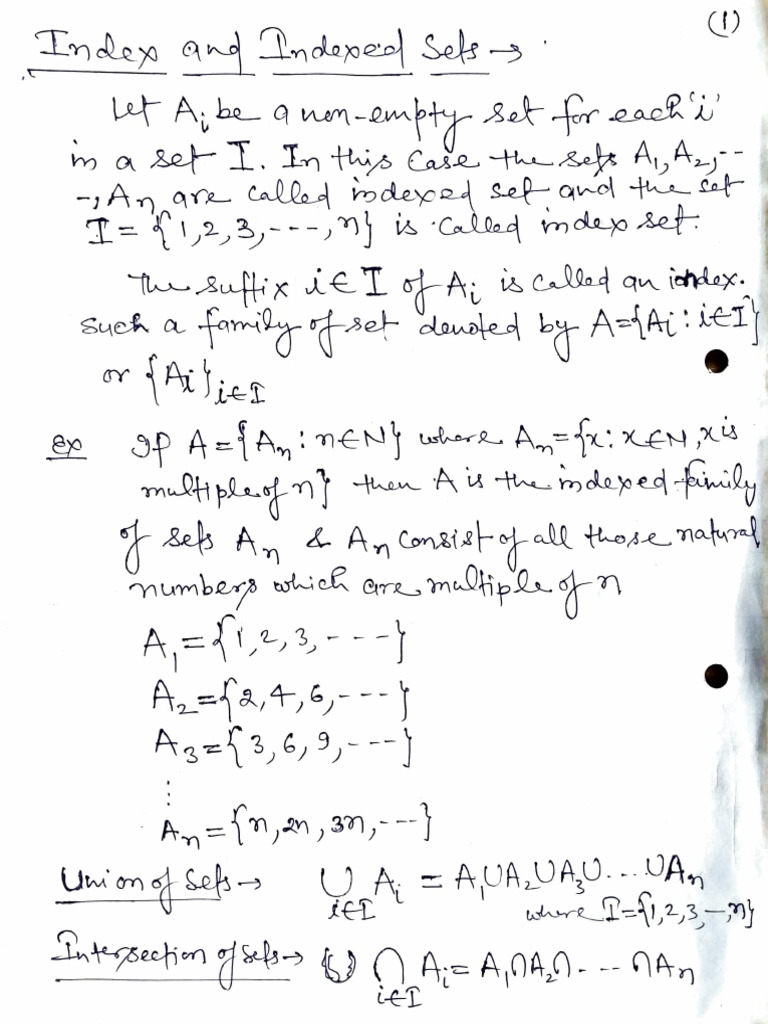 (1)
Index and Indexed Sets →
Let Aᵢ be a non-empty set for each 'i'
in a set I. In this case the sets A₁, A₂, --
-, Aₙ are called indexed set and the set
I = {1, 2, 3, ---, n} is called index set.
The suffix i ∈ I of Aᵢ is called an index.
Such a family of set denoted by A = {Aᵢ : i ∈ I}
or {Aᵢ}ᵢ∈I
ex If A = {Aₙ : n ∈ N} where Aₙ = {x : x ∈ N, x is
multiple of n} then A is the indexed family
of sets Aₙ & Aₙ consist of all those natural
numbers which are multiple of n
A₁ = {1, 2, 3, ----}
A₂ = {2, 4, 6, ---}
A₃ = {3, 6, 9, ---}
⋮
Aₙ = {n, 2n, 3n, ---}
Union of Sets → ⋃ Aᵢ = A₁ ∪ A₂ ∪ A₃ ∪ .... ∪ Aₙ
i ∈ I where I = {1, 2, 3, -, n}
Intersection of sets → ⋂ Aᵢ = A₁ ∩ A₂ ∩ - -- ∩ Aₙ
i ∈ I